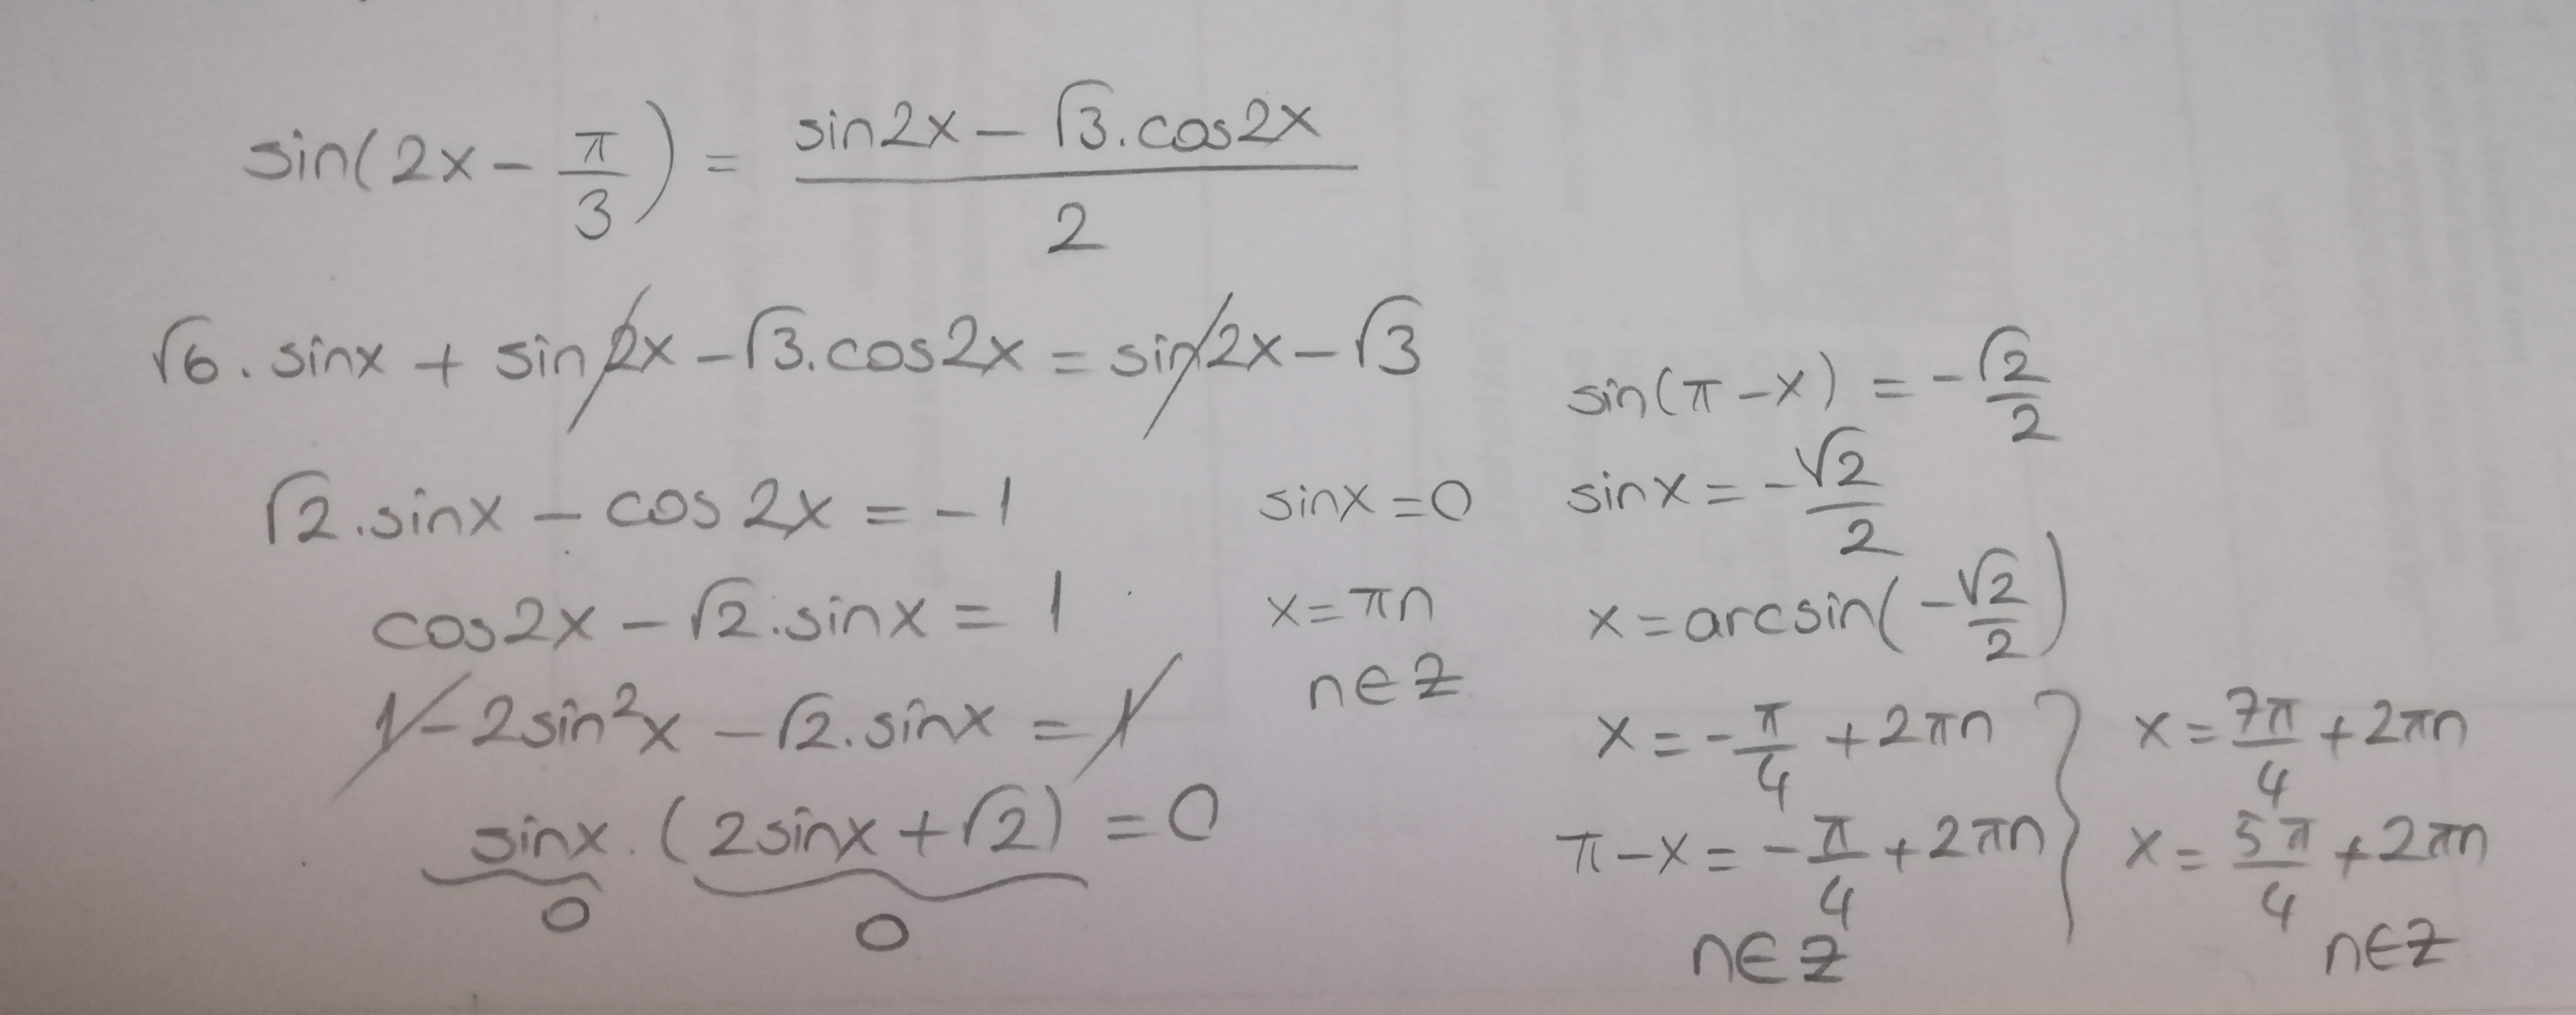 sin(2x - π/3) = (sin2x - √3.cos2x)/2
√6.sinx + sin2x - √3.cos2x = sin2x - √3
√2.sinx - cos2x = -1
cos2x - √2.sinx = 1
1 - 2sin²x - √2.sinx = 1
sinx.(2sinx + √2) = 0
0 0
sinx = 0
x = πn
n∈Z
sin(π - x) = -√2/2
sinx = -√2/2
x = arcsin(-√2/2)
x = -π/4 + 2πn
π - x = -π/4 + 2πn
n∈Z
x = 7π/4 + 2πn
x = 5π/4 + 2πn
n∈Z